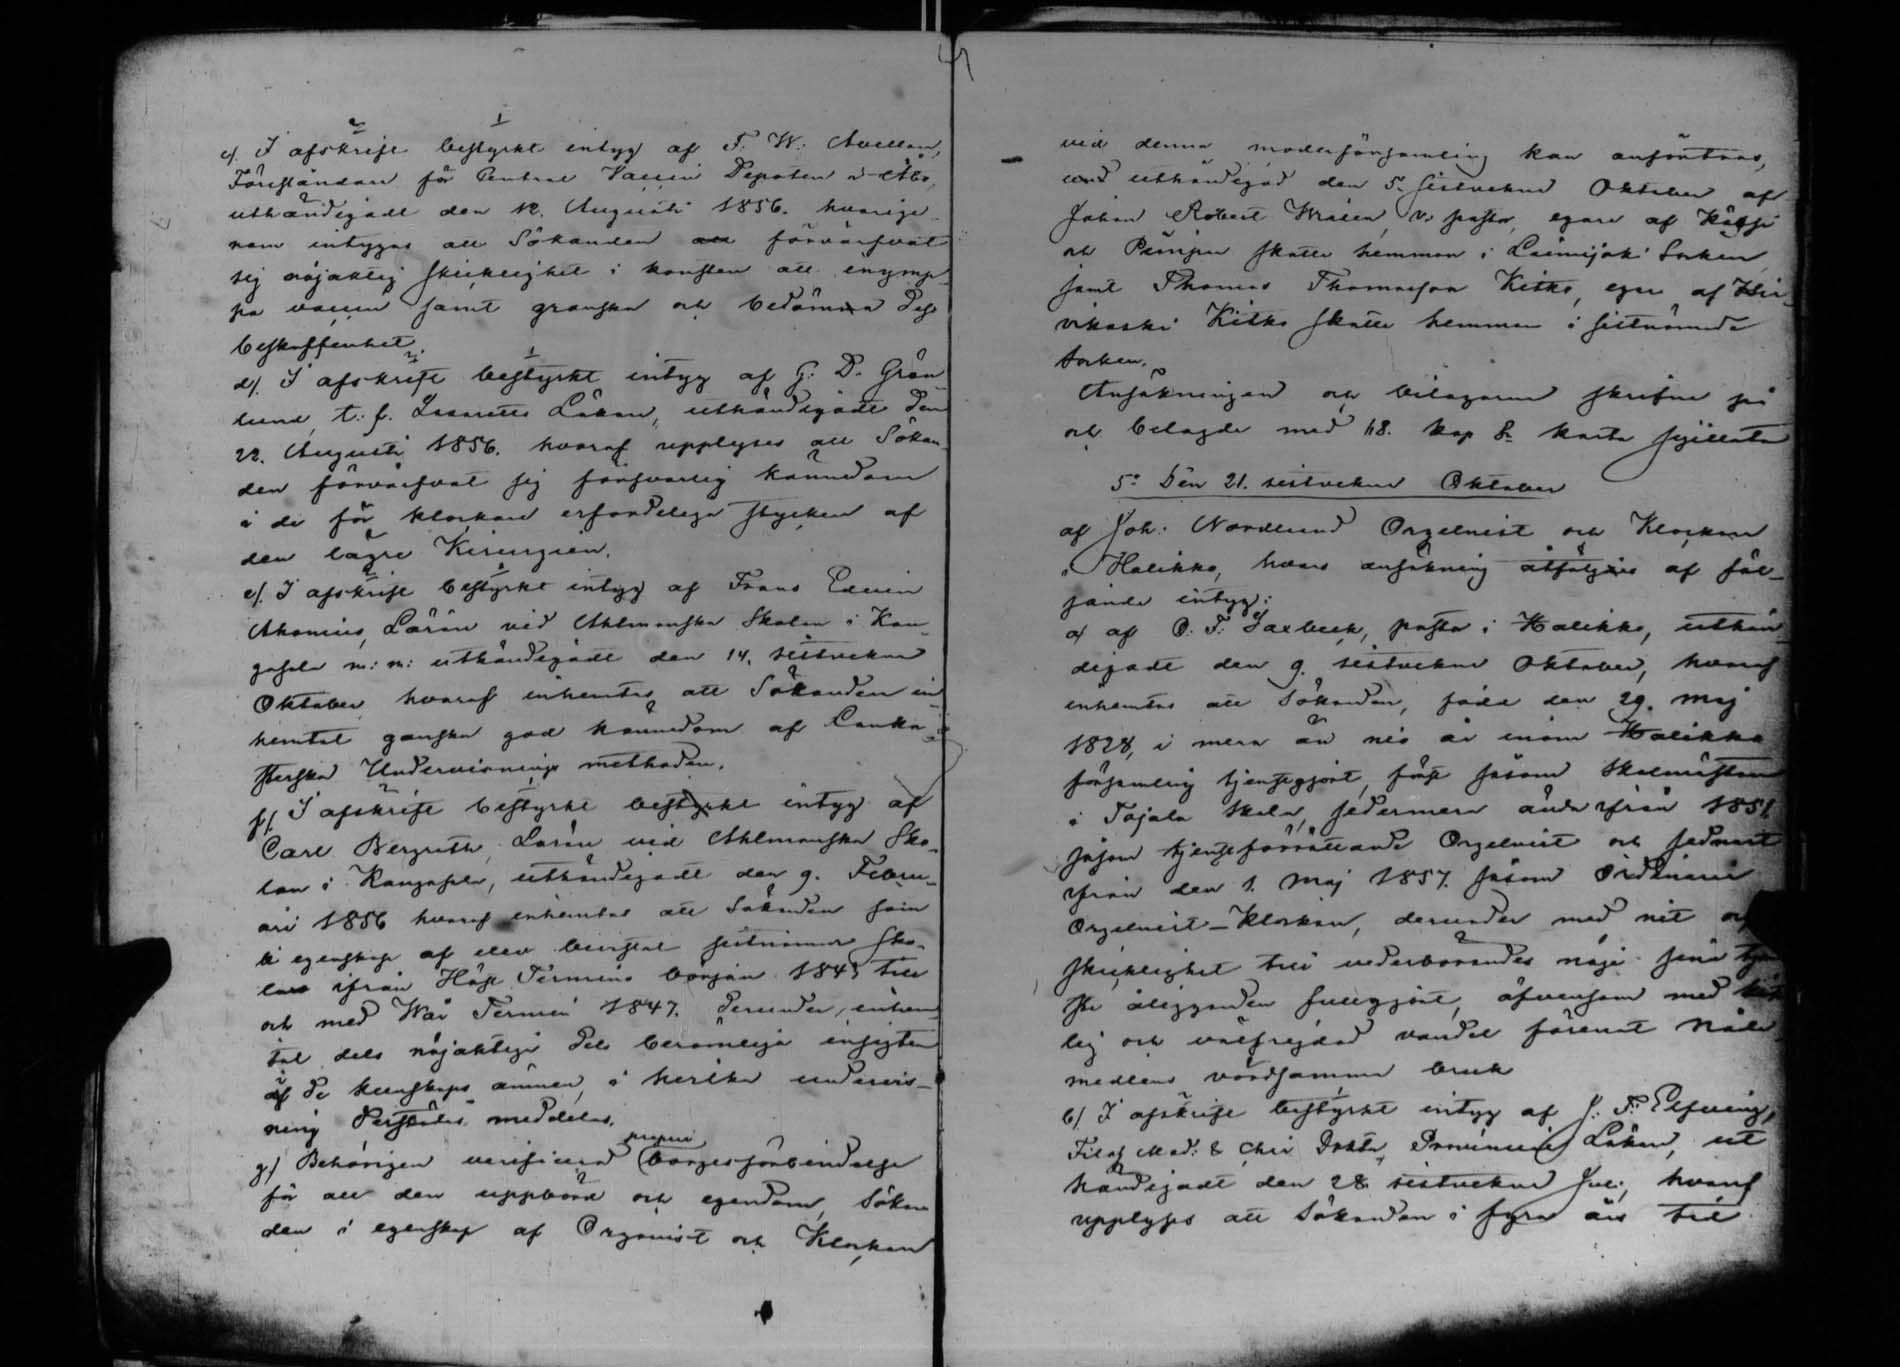 c/. I afskrift bestyrkt intyg af F. W. Avellan,
Föreståndare för Central Vaccin Depoten i Åbo,
uthändigadt den 12. Augusti 1856. hvarige-
nom intygas att Sökanden att förvärfvat
sig nöjaktig skicklighet i konsten att inymp-
pa vaccin samt granska och bedömma dess
beskaffenhet.
d/. I afskrift bestyrkt intyg af G. D. Grön-
lund, t. f. Lasaretts Läkare, uthändigadt den
22. Augusti 1856. hvaraf upplyses att Sökan-
den förvärfvat sig försvarlig kännedom
i de för klockare erforderliga stycken af
den lägre Kirurgien.
e/. I afskrift bestyrkt intyg af Frans Edvin
Akonius, Lärare vid Ahlmanska Skolan i Kan-
gasala m: m: uthändigadt den 14. sistvekne
Oktober, hvaraf inhemtas att Sökanden in-
hemtat ganska god kännedom af Lanka-
sterska Undervisnings methoden.
f/. I afskrift bestyrkt bestyrkt intyg af
Carl Bergroth, Lärare vid Ahlmanska Sko-
lan i Kangasala, uthändigadt den 9. Febru-
ari 1856 hvaraf inhemtas att Sökanden
i egenskap af elev bevistat sistnämnde sko-
la ifrån Höst Termins början 1845 till
och med Vår Termin 1847. derunder, inhem-
tat dels nöjaktiga dels berömliga insigter
af de kunskaps ämnen, i hvilka undervis-
ning derstädes meddelas.
g/ Behörigen verificerad proprie borgesförbindelse
för all den uppbörd och egendom, Sökan-
den i egenskap af Organist och Klockare
vid denna moderförsamling kan anförtros,
uthändigad den 5. sistvekne Oktober af
Johan Robert v. pastor, egare af
och skatte hemman i Loimijoki Socken
samt Thomas Thomasson Kitko, egare af Hir-
vikoski Kitko skatte hemman i sistnämnde
Socken.
Ansökningen och bilagorne skrifne på
och belagde med 18. kop S. karta sigillata
5: Den 21. sistvekne Oktober
af Joh: Nordlund Orgelnist och Klockare
i Halikko, hvars ansökning åtföljes af föl-
jande intyg:
a/ af C. F. Saxbeck, pastor i Halikko, uthän-
digadt den 9. sistvekne Oktober, hvaraf
inhemtas att Sökanden, född den 29. Maj
1828, i mera än nio år inom Halikko
församling tjenstgjort, först såsom Skolmästare
i Tajala Skola, sedermera ända ifrån 1851
såsom tjensteförrättande Orgelnist och sednast
ifrån den 1. Maj 1857. såsom Ordinarie
Orgelnist-Klockare, derunder med nit och
skicklighet till vederbörandes nöje sina tjen-
ste åligganden fullgjort, äfvensom med
lig och välfrejdad vandel förenat Nåde-
medlens vördsamma bruk
b/ I afskrift bestyrkt intyg af J. F. Elfving,
Filos. Med: & Chir Doktor, Provincial Läkare, ut-
händigadt den 28. sistvekne Juli, hvaraf
upplyses att Sökanden i fyra års tid